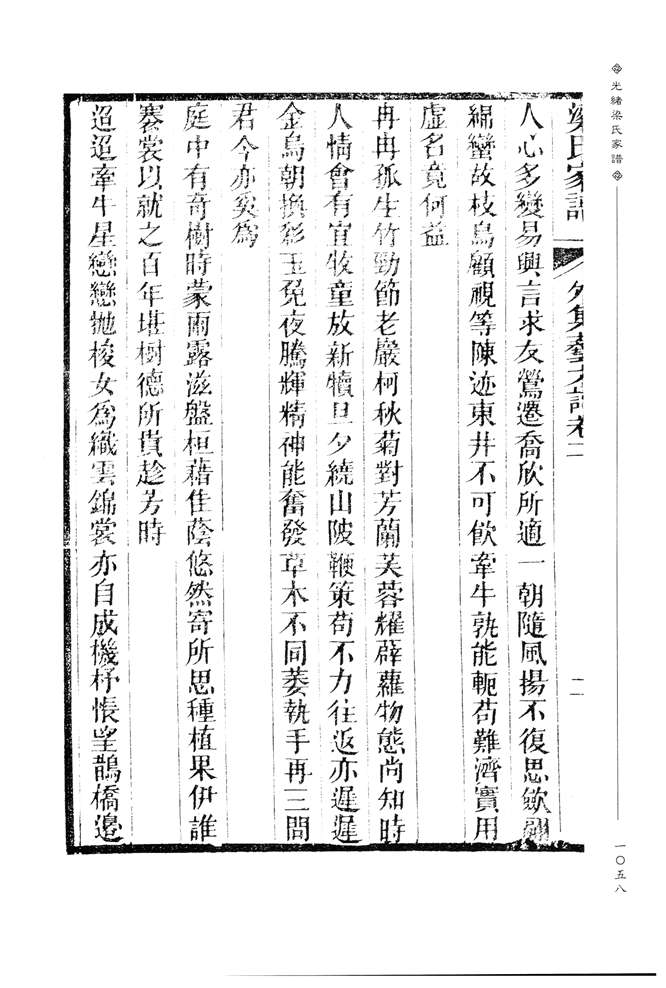 光緒梁氏家譜
一〇五八
梁氏家譜 外集藝文詩卷二 二
人心多變易興言求友鶯遷喬欣所適一朝隨風揚不復思斂翮
緜蠻故枝鳥顧視等陳迹東井不可飲牽牛孰能軛苟難濟實用
虛名竟何益
冉冉孤生竹勁節老巖柯秋菊對芳蘭芙蓉耀薜蘿物態尚知時
人情會有宜牧童放新犢旦夕繞山陂鞭策苟不力往返亦遲遲
金烏朝換彩玉兔夜騰輝精神能奮發草木不同萎執手再三問
君今亦奚爲
庭中有奇樹時蒙雨露滋盤桓藉佳蔭悠然寄所思種植果伊誰
褰裳以就之百年堪樹德所貴趁芳時
迢迢牽牛星戀戀拋梭女爲織雲錦裳亦自成機杼悵望鵲橋邊